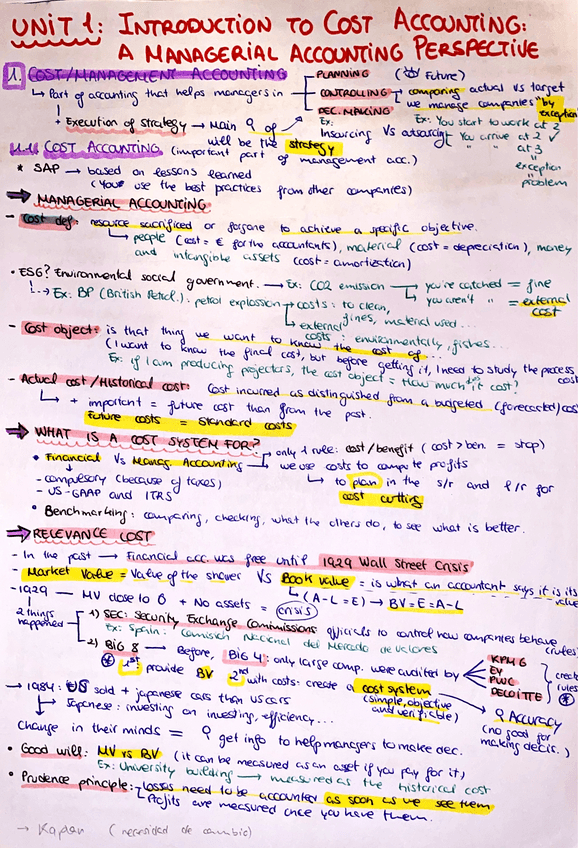 UNIT 1: INTRODUCTION TO COST ACCOUNTING:
A MANAGERIAL ACCOUNTING PERSPECTIVE
1. COST/MANAGEMENT ACCOUNTING
↳ Part of accounting that helps managers in
PLANNING (Future)
CONTROLLING ↳ comparing actual vs target
we manage companies "by exception"
DEC. MAKING
Ex: Insourcing Vs outsourcing
Ex: You start to work at 2
You arrive at 2 ✓
" " at 3
"
exception
"
problem
• Execution of strategy → Main of will be the strategy
1.1. COST ACCOUNTING (important part of management acc.)
* SAP → based on lessons learned
(You use the best practices from other companies)
⇒ MANAGERIAL ACCOUNTING
- Cost def: resource sacrificed or forgone to achieve a specific objective.
↳ people (cost = € for the accountants), material (cost = depreciation), money
and intangible assets (cost = amortization)
• ESG? Environmental social government. → Ex: CO2 emission → you're catched = fine
↳ you aren't " = external cost
↳ Ex: BP (British Petrol.): petrol explosion → costs: to clean,
fines, material used...
↳ external costs: environmentally, fishes...
- Cost object: is that thing we want to know the cost of...
(I want to know the final cost, but before getting it, I need to study the process cost
Ex: if I am producing projectors, the cost object = How much it cost?
- Actual cost/Historical cost: Cost incurred as distinguished from a budgeted (forecasted) cost
↳ + important = future cost than from the past.
Future costs = Standard costs
⇒ WHAT IS A COST SYSTEM FOR?
only 1 rule: cost/benefit (cost > ben. = stop)
• Financial Vs Manag. Accounting → we use costs to compute profits
- compulsory (because of taxes)
- US-GAAP and ITRS
↳ to plan in the s/r and l/r for
cost cutting
• Benchmarking: comparing, checking, what the others do, to see what is better.
⇒ RELEVANCE COST
- In the past → Financial acc. was free until 1929 Wall Street Crisis
- Market Value = Value of the shares VS Book value = is what an accountant says it is its value
↳ (A-L=E) → BV=E=A-L
- 1929 → MV close to 0 + No assets = crisis
2 things happened
1) SEC: Security Exchange Commissions officials to control how companies behave (rules)
Ex: Spain: Comisión Nacional del Mercado de valores
2) BIG 8 → Before, BIG 4: only large comp. were audited by
KPMG
EY
PWC
DELOITTE
create rules *
* 1st provide BV 2nd with costs: create a cost system
(simple, objective and verifiable)
Accuracy
(no good for making decis.)
→ 1984: US sold + japanese cars than US cars
↳ Japanese: investing on investing, efficiency...
Change in their minds = get info to help managers to make dec.
• Good will: MV vs BV (it can be measured as an asset if you pay for it)
Ex: University building → measured as the historical cost
• Prudence principle: - Losses need to be accounter as soon as we see them
- Profits are measured once you have them.
→ Kapan (necesidad de cambio)